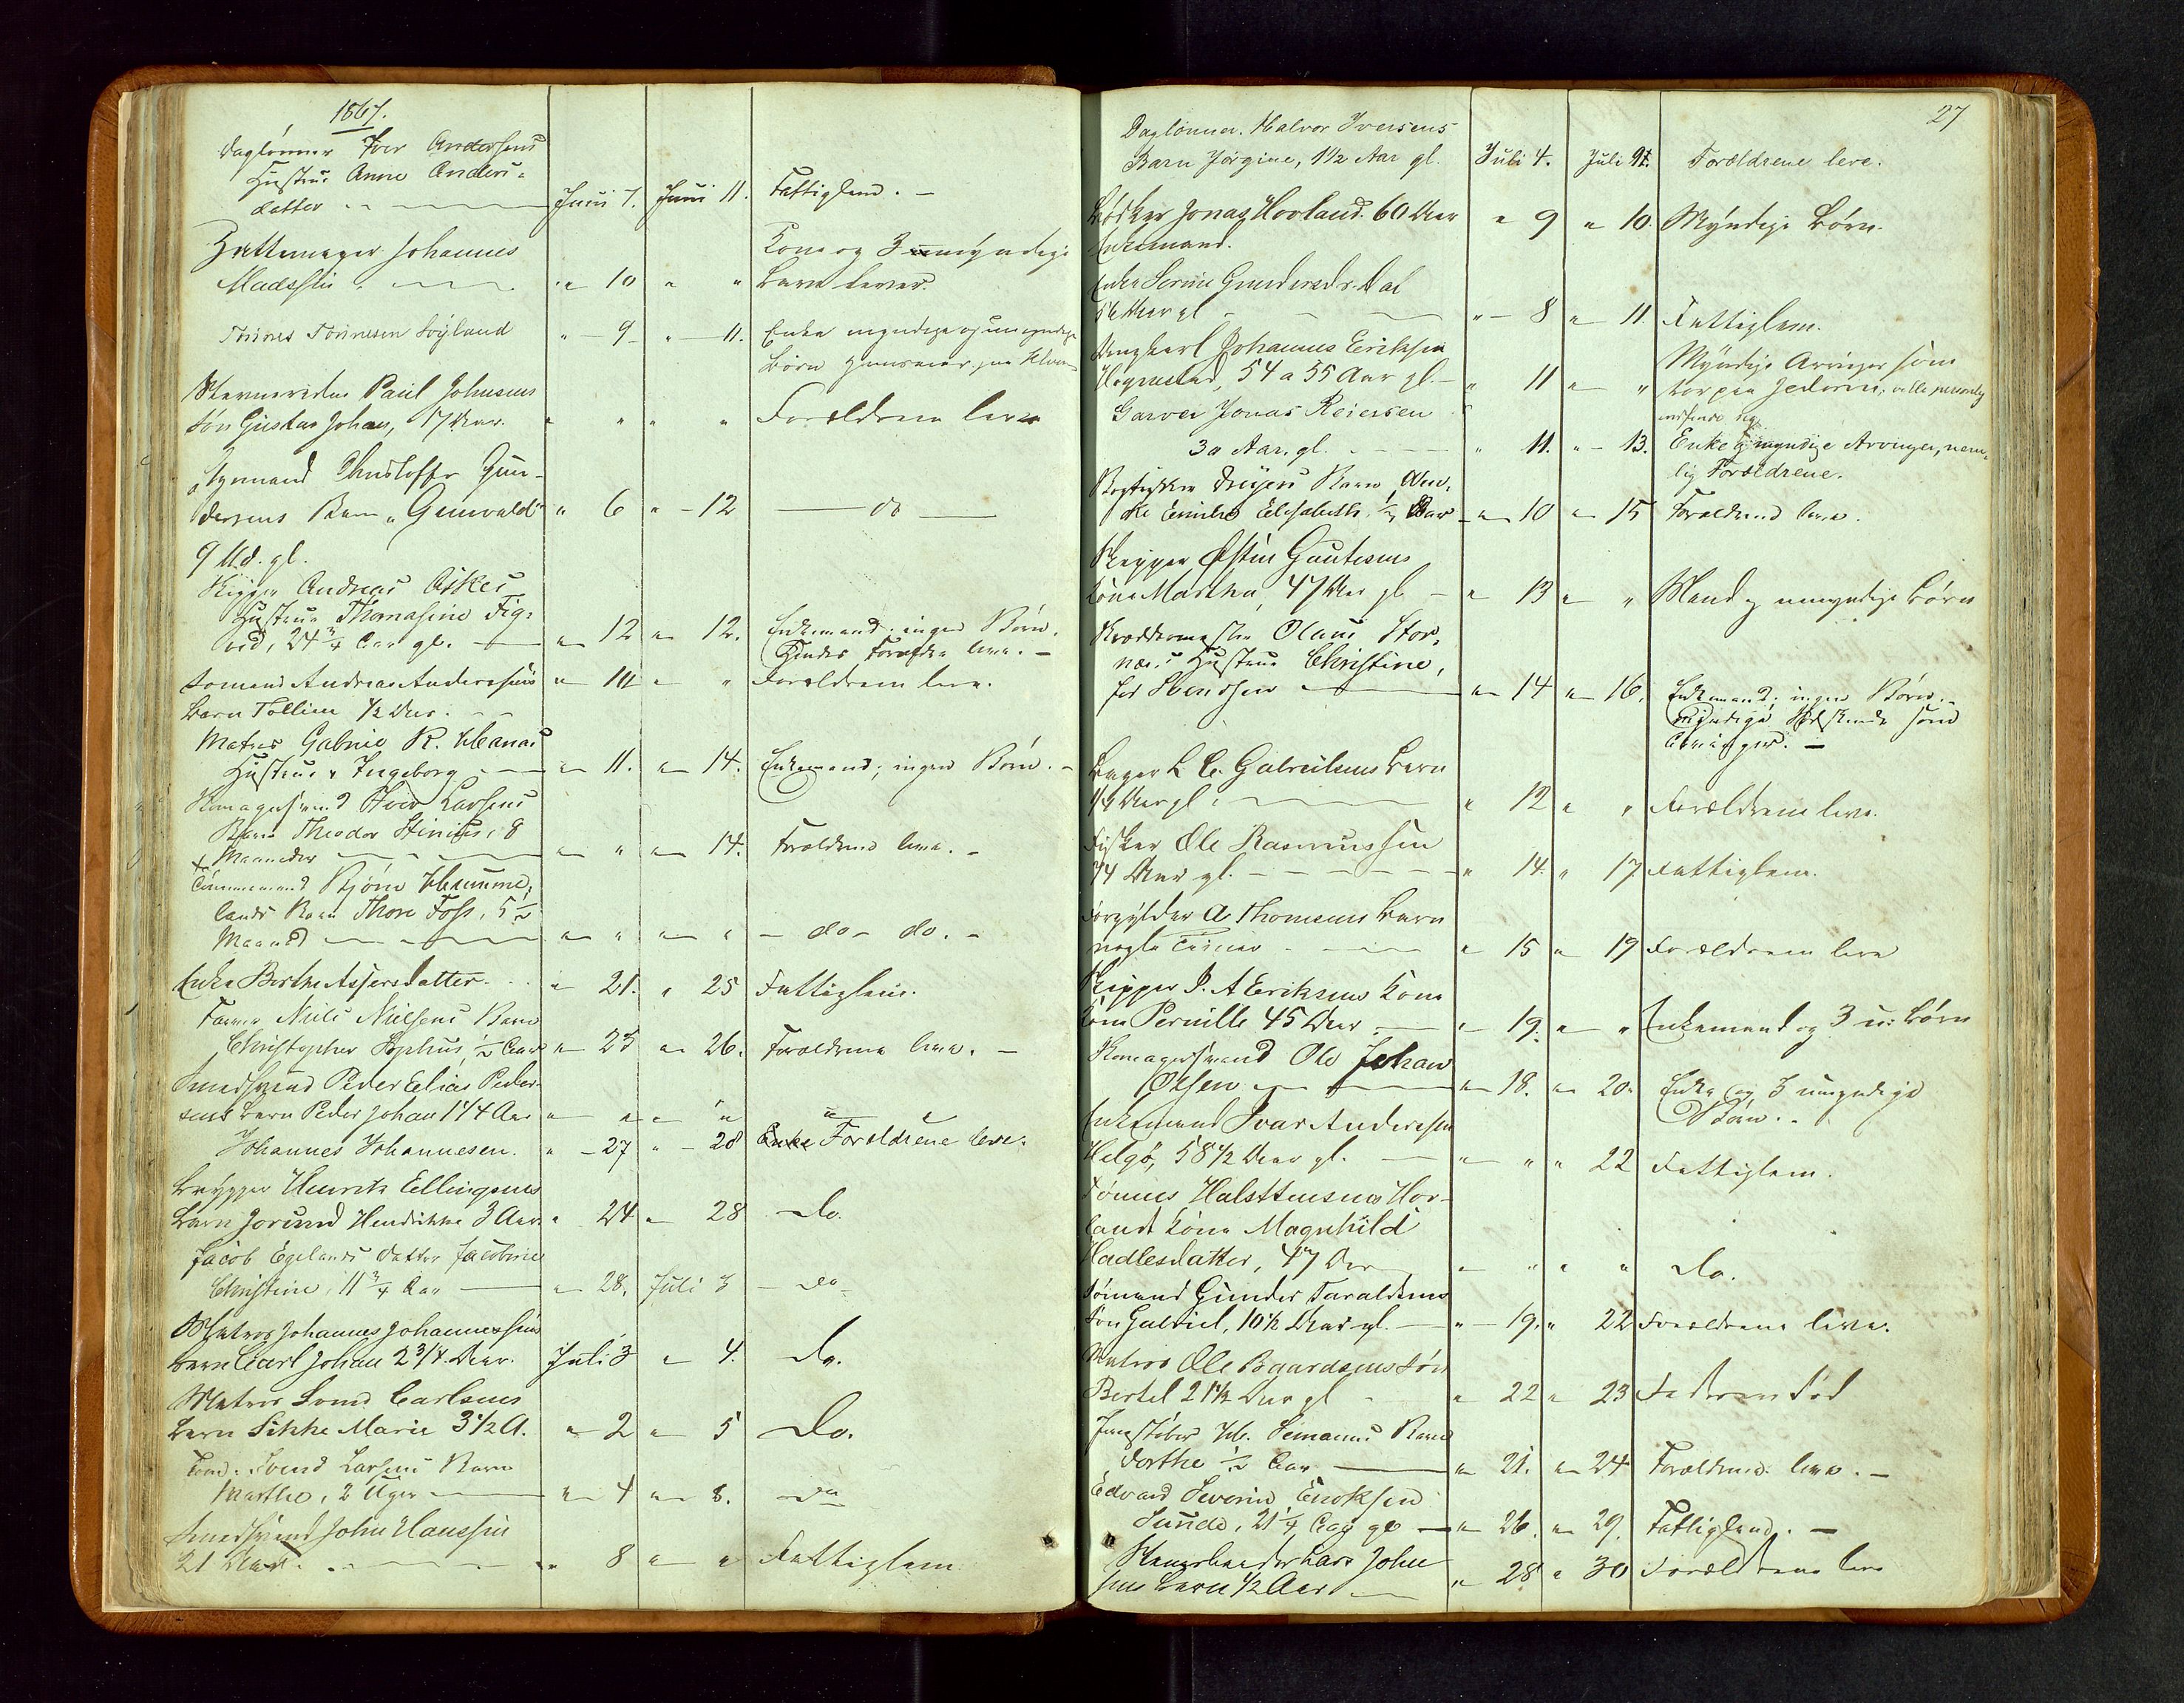 1867.
Daglønner Iver Andersens
Hustru Anne Anders-
datter Juni 7. Juni 11. Fattiglem. -
Hattemager Johannes Kone og 3 umyndige
Madssen " 10 " " Børn lever.
Tønnes Tønnesen Søyland " 9 " 11. Enke myndige og umyndige
Børn
Paul Johnsens
Søn Gustav Johan, 17 Aar. " " " " Forældrene leve
Styrmand Christoffer Gun-
dersens Barn "Gunvald" " 6 " 12 do
9 Md. gl.
Skipper Andreas Askes
Hustru Thomasine Fig-
ved, 24 3/4 Aar gl. " 12 " 12. Enkemand; ingen Børn.
Hendes Forældre leve. -
Sømand Andreas Andersens " 11 " " Forældrene leve.
Barn Tolline 1/2 Aar.
Matros Gabriel R.
Hustru Ingeborg " 11. " 14. Enkemand; ingen Børn. -
Skomagersvend Iver Larsens
Barn Theodor Stinius, 8
Maaneder " " " 14. Forældrene leve. -
Tømmermand Bjørn
lands Barn Thore Foss, 5 1/2
Maaned " " " " - do - do. -
Enke Berthe Assersdatter. " 21. " 25 Fattiglem.
Niels Nielsens Barn
Christopher Sophus, 1/2 Aar " 23 " 26. Forældrene leve. -
Smedsvend Peder Elias Peder-
sens Barn Peder Johan 1 1/4 Aar " " " " " "
Johannes Johannesen. " 27 " 28 Enke Forældrene leve.
Brygger Henrik Ellingsens
Barn Jorund Hendrikke 3 Aar. " 24 " 28 do.
Jacob Egelands Datter Jacobine
Christine, 11 3/4 Aar " 28. Juli 3 - do -
Matros Johannes Johannessens
Barn Carl Johan 2 3/4 Aar. Juli 3 " 4. do.
Matros Svend Carlsens
Barn Sikke Marie 3 1/2 A. " 2 " 5 do.
Svend Larsens Barn
Marthe, 2 Uger " 4 " 8. do
Smedsvend John Hanssen
21 Aar. " 8 " " Fattiglem
27
Daglønner. Halvor Iversens
Barn Jørgine, 1 1/2 Aar gl. Juli 4. Juli 9. Forældrene leve.
Bødker Jonas Hovland. 60 Aar " 9 " 10. Myndige Børn.
Enkemand.
Enke Serine Gundersdr. Dal
Aar gl " 8 " 11. Fattiglem.
Ungkarl Johannes Eriksen Myndige Arvinger som
Hognestad, 54 a 55 Aar gl. - " 11 " " bor paa Jederen;
Garver Jonas Reiersen
30 Aar. gl. " 11. " 13. Enke & myndige Arvinger, nem-
lig Forældrene.
Bogtrykker Dreyers Barn,
Emilie Elisabeth. 1/2 Aar " 10 " 15 Forældrene leve.
Skipper Østen Gautesens
Kone Martha, 47 Aar gl - " 13 " " Mand & umyndige Børn
Skræddermester Olaus Stor-
næs's Hustru Christine,
fød Svendsen " 14 " 16. Enkemand; ingen Børn. -
myndige Sødskende som
Arvinger. -
Bager L. C. Gabrielsens Barn
1/4 Aar gl. " 12 " " Forældrene leve.
Fisker Ole Rasmussen
74 Aar gl. " 14. " 17 Fattiglem.
Forgylder A. Thomsens Barn
nogle Timer " 15 " 19 Forældrene leve
Skipper P. A Eriksens Kone
Kone Pernille 45 Aar. " 19. " " Enkemand og 3 u. Børn
Skomagersvend Ole Johan
Olsen " 18. " 20. Enke og 3 umyndige
Børn. -
Enkemand Ivar Andersen
Helgø, 58 1/2 Aar gl. " " " 22 Fattiglem.
Tønnes Halstensens Hov-
lands Kone Magnhild
Hadlesdatter, 47 Aar " " " " do.
Sømand Gunder Taraldsens
Søn Gabriel, 10 1/2 Aar gl. " 19. " 22 Forældrene leve.
Matros Ole Baardsens Søn
Bertel 21 1/2 Aar gl " 22 " 23 Faderen død
Seimanns Barn
Dorthe 1/2 Aar " 21. " 24 Forældrene leve. -
Edvard Severin Enoksen
Sunde, 21 1/4 Aar gl " 26. " 29. Fattiglem. -
Lars John
sens Barn 1/2 Aar " 28 " 30 Forældrene leve